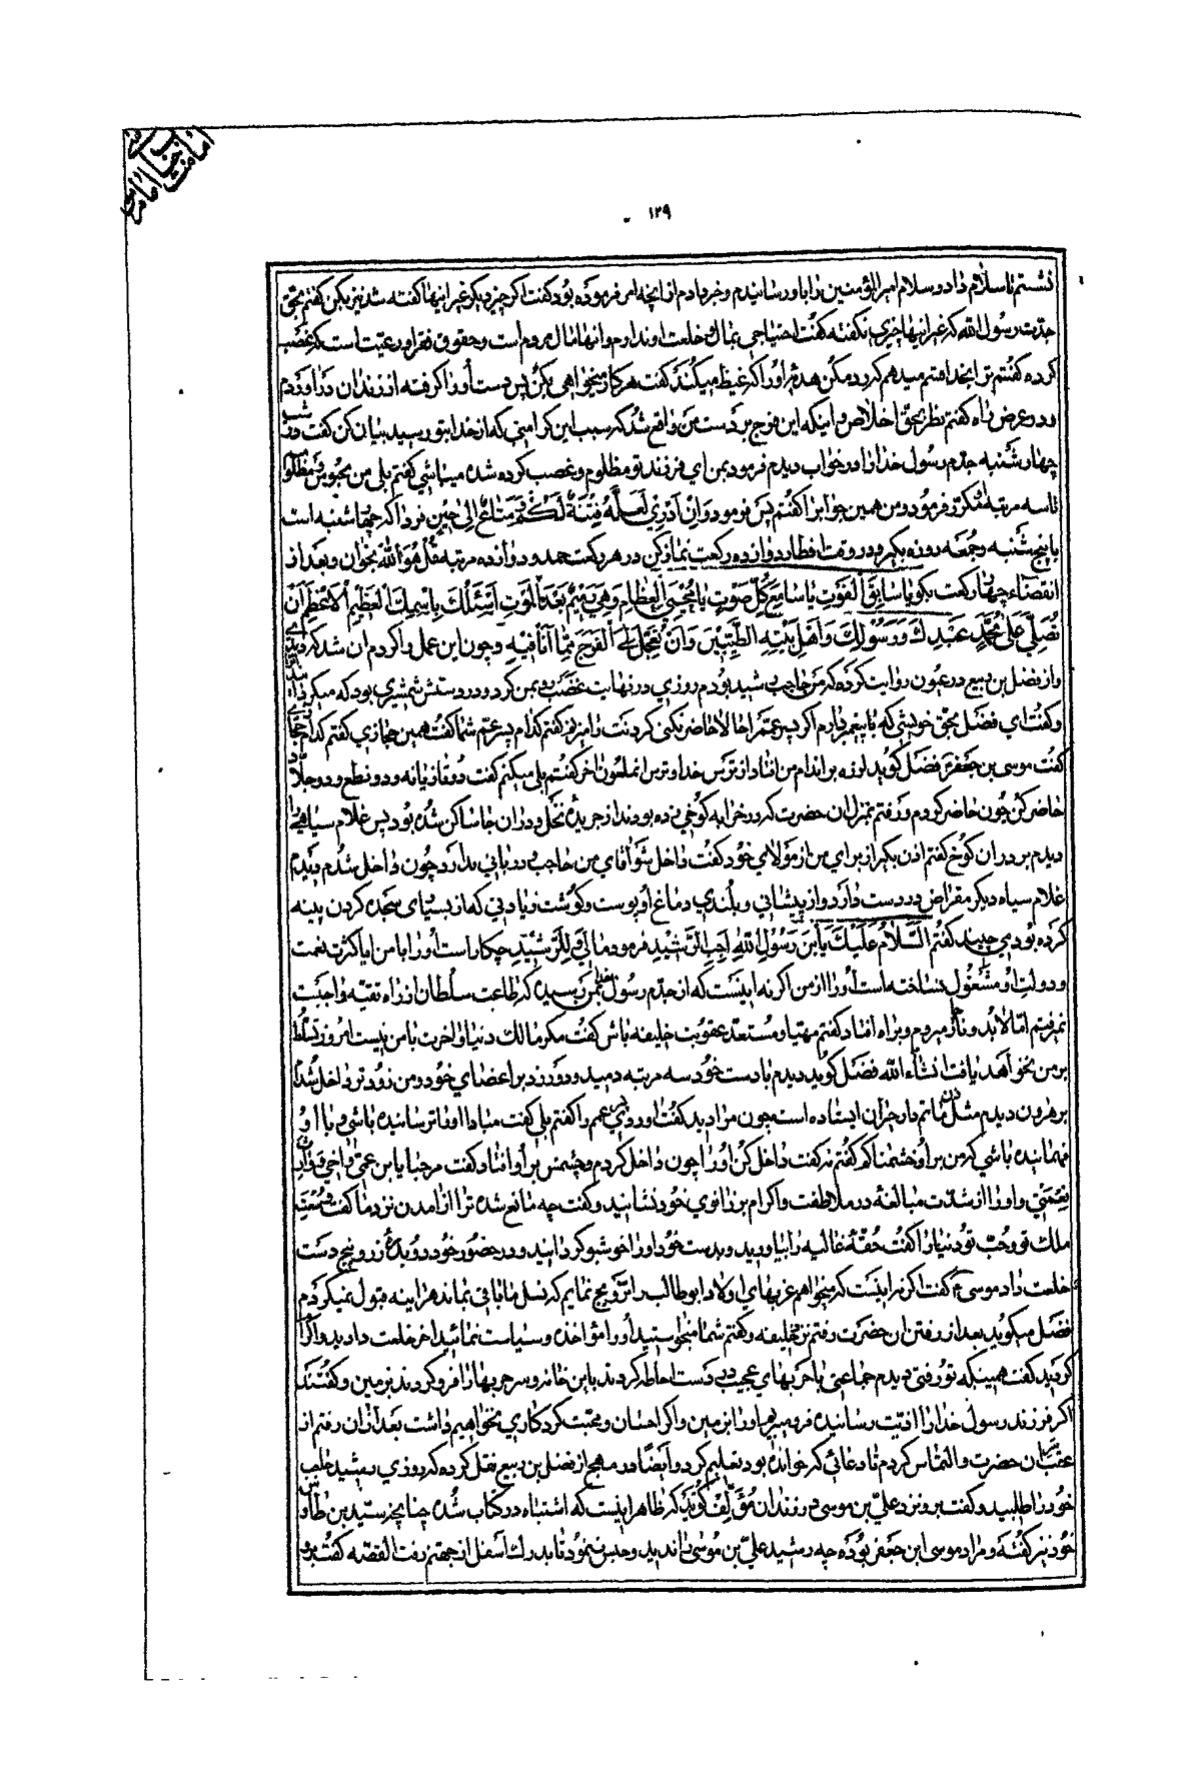 ۱۲۹
نشستم تا سلام داد و سلام امیرالمؤمنین را باو رسانیدم و خبر دادم از آنچه امر فرموده بود گفت اگر چیز دیگر غیر اینها گفته شد نیز بکن گفتم بحق
جدت رسول الله که غیر اینها چیزی نگفته گفت احتیاجی بمال و خلعت او ندارم و اینها مال مردم است و حقوق فقرا و رعیت است که غصب
کرده گفتم ترا بخدا قسم میدهم که رد مکن هدیه او را که غیظ میکند گفت هر کار میخواهی بکن پس دست او را گرفته از زندان در آوردم
و در عرض راه گفتم نظر بحق اخلاص و اینکه این فرج بر دست من واقع شد که سبب این کرامتی که از خدا بتو رسید بیان کن گفت در شب
چهارشنبه جدم رسول خدا را در خواب دیدم فرمود بمن ای فرزند تو مظلوم و غصب کرده شده میباشی گفتم بلی من محبوس و مظلوم
تا سه مرتبه مکرر فرمود و من همین جواب را گفتم پس فرمود وَاِنْ اَدْری لَعَلَّهُ فِتْنَةٌ لَکُمْ وَ مَتاعٌ اِلی حینٍ فردا که چهارشنبه است
با پنجشنبه و جمعه روزه بگیر و در وقت افطار دوازده رکعت نماز کن در هر رکعت حمد و دوازده مرتبه قل هو الله بخوان و بعد از
انقضاء چهار رکعت بگو یا سابِقَ الفَوْتِ یا سامِعَ کُلِّ صَوْتٍ یا مُحْیِیَ العِظامِ وَهِیَ رَمیمٌ بَعْدَ المَوْتِ اَسْئَلُکَ بِاسْمِکَ العَظیمِ الاَعْظَمِ اَنْ
تُصَلِّیَ عَلی مُحَمَّدٍ عَبْدِکَ وَ رَسُولِکَ وَ اَهْلِ بَیْتِهِ الطَّیِّبینَ وَ اَنْ تُعَجِّلَ لِیَ الفَرَجَ مِمّا اَنَا فیهِ و چون این عمل را کردم آن شد که دیدی
و از فضل بن ربیع در عیون روایت کرده که من حاجب رشید بودم روزی در نهایت غضب رو بمن کرد و در دستش شمشیری بود که میگردانید
و گفت ای فضل بحق خویشی که با پیغمبر دارم اگر پسر عمم را حالا حاضر نکنی گردنت را میزنم گفتم کدام پسر عم شما گفت همین حجازی گفتم کدام حجازی
گفت موسی بن جعفر فضل گوید لرزه بر اندام من افتاد از ترس خدا و ترس آنملعون آخر گفتم بلی میکنم گفت دو تازیانه و دو نطع و دو جلاد
حاضر کن چون حاضر کردم و رفتم بمنزل آن حضرت که در خرابه کوخی زده بودند از جریده نخل و در آن جا ساکن شده بود پس غلام سیاهی
دیدم بر در آن کوخ گفتم اذن بگیر از برای من از مولای خود گفت داخل شو آقای من حاجب و دربانی ندارد چون داخل شدم دیدم
غلام سیاه دیگر مقراض در دست دارد و از پیشانی و بلندی دماغ او پوست و گوشت زیادتی که از بسیاری سجده کردن پینه
کرده بود می چیند گفتم السَّلامُ عَلَیْکَ یَابْنَ رَسُولِ اللهِ اَجِبِ الرَّشیدَ فرمود مالی وَ لِلرَّشیدِ چکار است او را با من آیا کثرت نعمت
و دولت او مشغول نساخته است او را از من اگر نه اینست که از جدم رسول خدا بمن رسیده که طاعت سلطان از راه تقیه واجبست
نمیرفتم اما لابد و ناچار میروم و براه افتاد گفتم مهیا و مستعد عقوبت خلیفه باش گفت مگر مالک دنیا و آخرت با من نیست امروز تسلط
بر من نخواهد یافت انشاء الله فضل گوید دیدم با دست خود سه مرتبه دمید و دور زد بر اعضای خود و من زودتر داخل شدم
بر هرون دیدم مثل زن ماتم دار حیران ایستاده است چون مرا دید گفت آوردی پسر عمم را گفتم بلی گفت مبادا او را ترسانیده باشی و یا او
فهمانیده باشی که من بر او خشمناکم گفتم نه گفت داخل کن او را چون داخل کردم و چشمش بر او افتاد گفت مرحبا یابن عمی و اخی و وارث
نعمتی و او را از شدت مبالغه در ملاطفت و اکرام بر زانوی خود نشانید و گفت چه مانع شده ترا از آمدن نزد ما گفت وسعت
ملک تو و حب تو دنیا را گفت حقهٔ غالیه را بیاورید و بدست خود او را خوشبو گردانید و در حضور خود دو بدرهٔ زر و پنج دست
خلعت داد موسی ع گفت اگر نه اینست که میخواهم عزبهای اولاد ابو طالب را تزویج نمایم که نسل ما باقی بماند هر آینه قبول نمیکردم
فضل میگوید بعد از رفتن آن حضرت رفتم نزد خلیفه و گفتم شما میخواستید او را مؤاخذه و سیاست نمائید آخر خلعت دادید و اکرام
کردید گفت همینکه تو رفتی دیدم جماعتی با حربهای عجیب در دست احاطه کردند باین خانه و سر حربها را فرو کردند بزمین و گفتند
اگر فرزند رسول خدا را اذیت رسانیده فرو میبریم او را بزمین و اگر احسان و محبت کرد کاری نخواهیم داشت بعد از آن رفتم از
عقب آن حضرت و التماس کردم تا دعائی که خوانده بود تعلیم کرد و ایضا در مهج از فضل بن ربیع نقل کرده که روزی رشید حاجب
خود را طلبید و گفت برو نزد علی بن موسی در زندان مؤلف گوید که ظاهر اینست که اشتباه در کتاب شده چنانچه سید بن طاوس
خود نیز گفته و مراد موسی ابن جعفر بوده چه رشید علی بن موسی را ندید و حبس ننمود تا بدرک اسفل از جهنم رفت القصه گفت برو